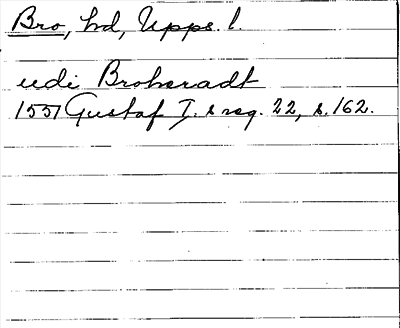 Bro, hd, Upps. l.
udi Brohæradt
1551 Gustaf I.s reg. 22, s. 162.